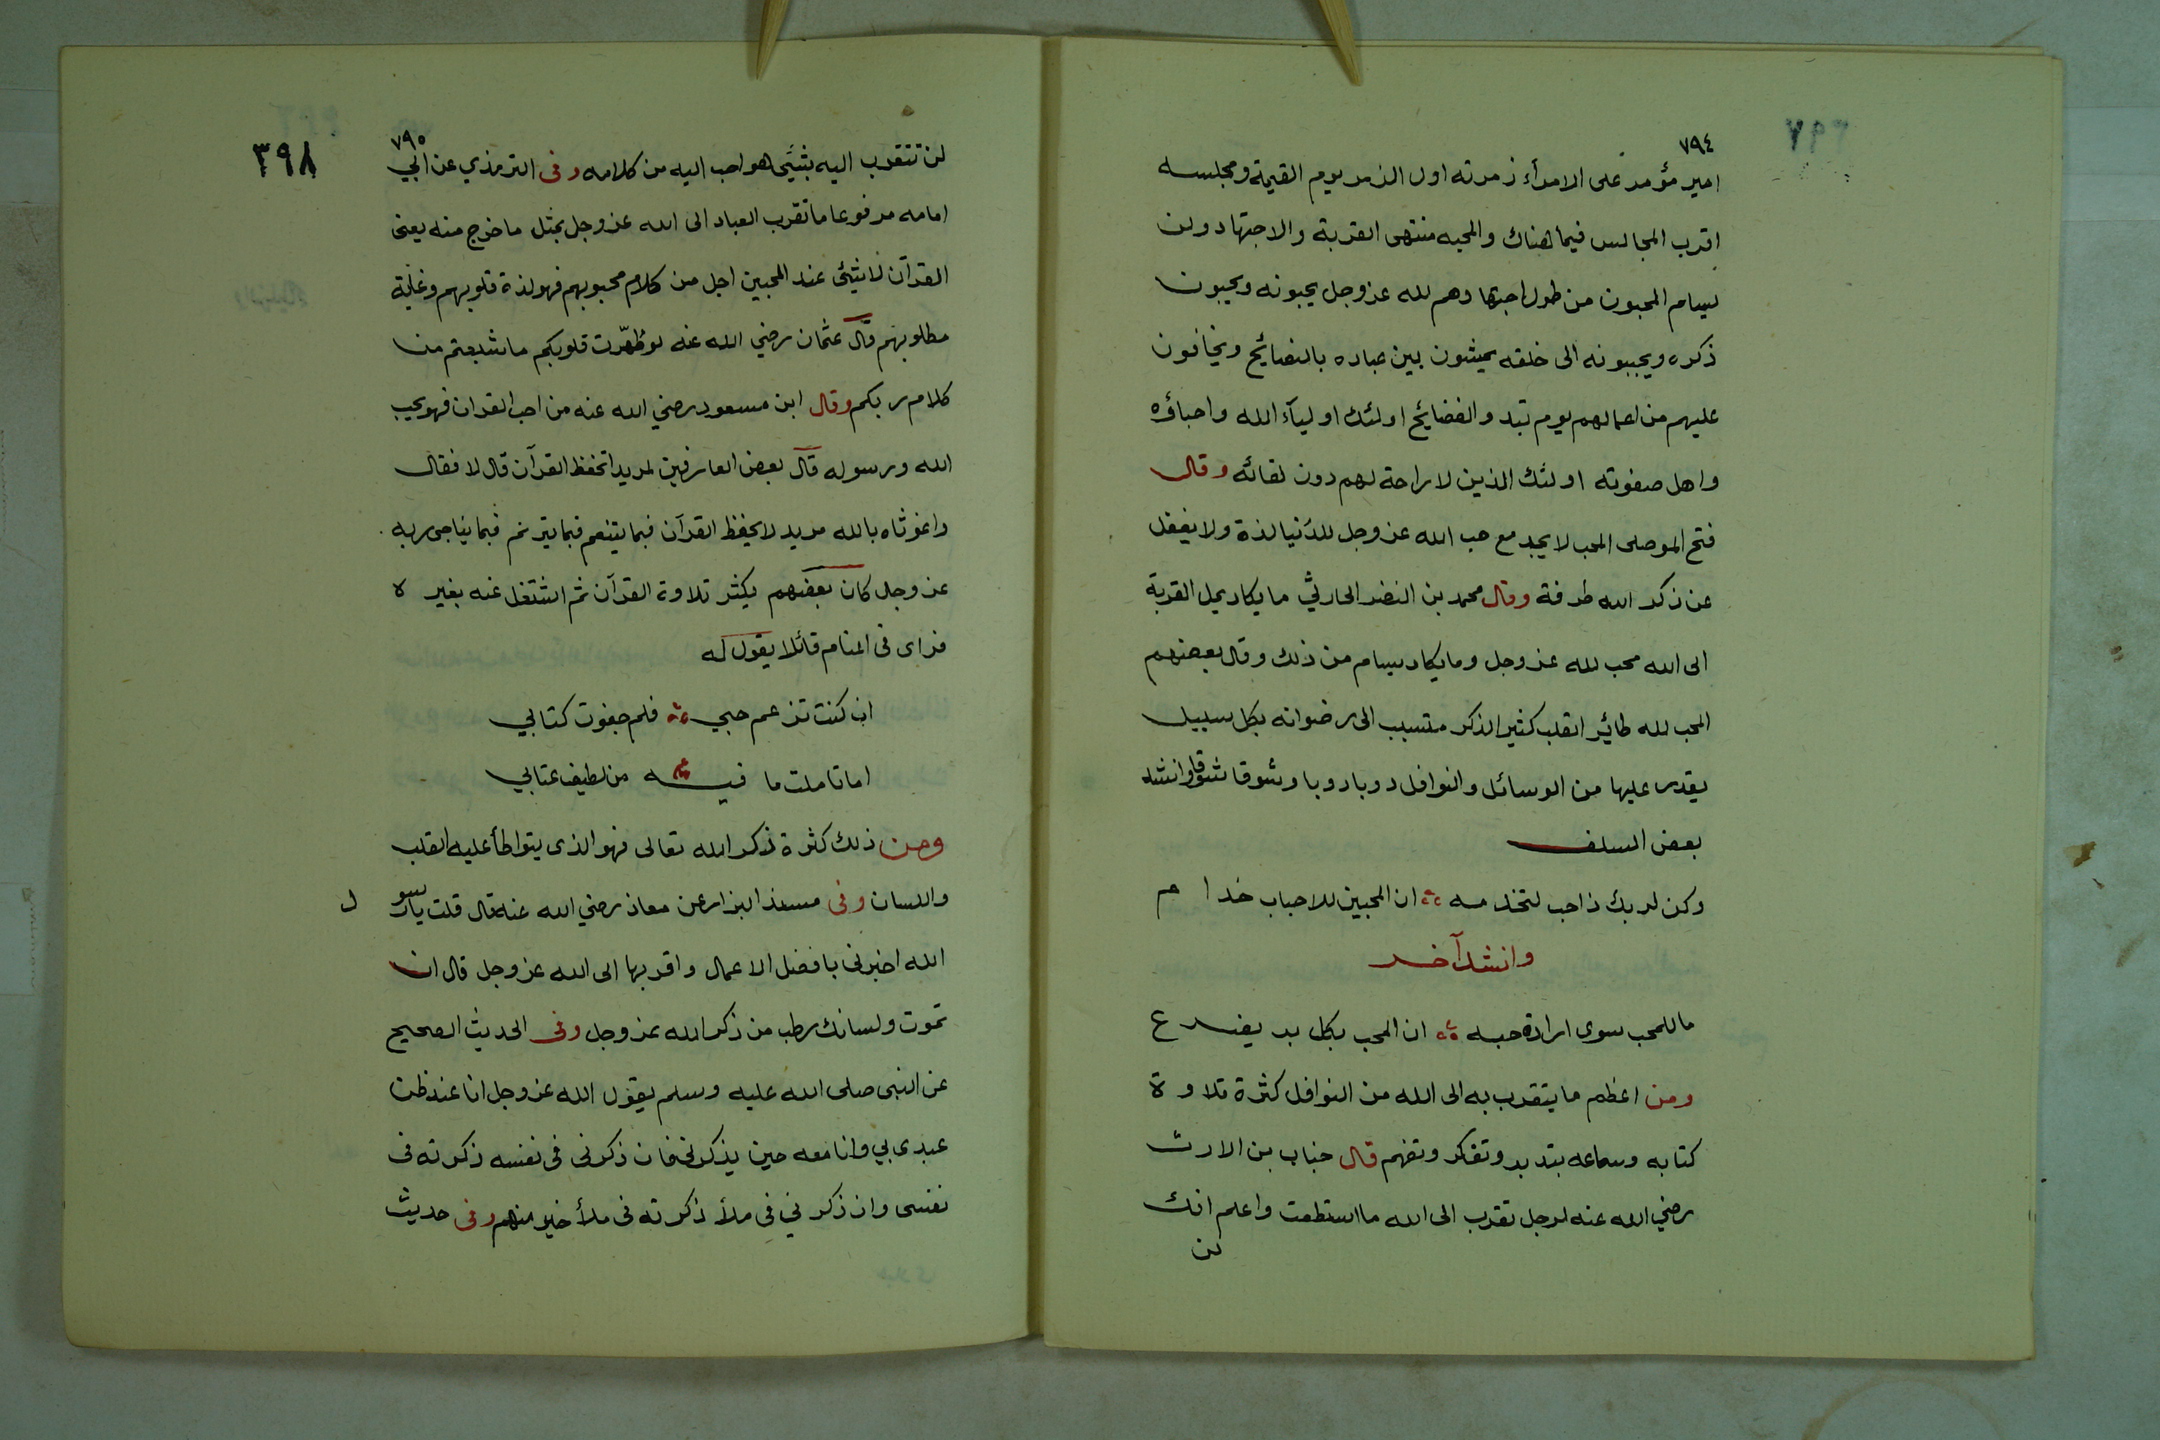 ٧٩٤
امير مؤمر على الامرآء زمرته اول الزمر يوم القيمة ومجلسه
اقرب المجالس فيما هناك والمحبه منتهى القربة والاجتهاد ولن
ليسام المحبون من طول اجتهادهم لله عز وجل يحبونه ويحبون
ذكره ويحببونه الى خلقه يمشون بين عباده بالنصائح ويخافون
عليهم من اعمالهم يوم تبدوالفضائح اولئك اوليآء الله واحباؤه
واهل صفوته اولئك الذين لا راحة لهم دون لقائه وقال
فتح الموصلى المحب لا يجد مع حب الله عز وجل للدنيا لذة ولا يغفل
عن ذكر الله طرفة وقال محمد بن النضر الحارثي ما يكاد يمل القربة
الى الله محب لله عز وجل وما يكاد يسام من ذلك وقال بعضهم
المحب لله طائر القلب كثير الذكر متسبب الى رضوانه بكل سبيل
يقدر عليها من الوسائل والنوافل دوبا دوبا وشوقا شوقا وانشد
بعض السلف
وكن لربك ذا حب لتخدمه ان المحبين للاحباب خدا م
وانشد آخر
ما للمحب سوى ارادة حبه ان المحب بكل بر يضرع
ومن اعظم ما يتقرب به الى الله من النوافل كثرة تلاوة
كتابه وسماعه بتدبر وتفكر وتفهم قال خباب بن الارت
رضي الله عنه لرجل تقرب الى الله ما استطعت واعلم انك
لن
٧٩٥
٣٩٨
لن تتقرب اليه بشيئ هو احب اليه من كلامه وفى الترمذي عن ابي
امامه مرفوعا ما تقرب العباد الى الله عز وجل بمثل ما خرج منه يعنى
القرآن لا شيئ عند المحبين اجل من كلام محبوبهم فهو لذة قلوبهم وغاية
مطلوبهم قال عثمان رضي الله عنه لو طهّرت قلوبكم ما شبعتم من
كلام ربكم وقال ابن مسعود رضي الله عنه من احب القران فهو يحب
الله ورسوله قال بعض العارفين لمريد اتحفظ القرآن قال لا فقال
واغوثاه بالله مريد لا يحفظ القرآن فبما يتنعم فبما يترنم فبما يناجى ربه
عز وجل كان بعضهم يكثر تلاوة القرآن ثم اشتغل عنه بغير ه
فراى فى المنام قائلا يقول له
ان كنت تزعم حبي فلم جفوت كتابي
اما تاملت ما فيه من لطيف عتابي
ومن ذلك كثرة ذكر الله تعالى فهو الذى يتواطأ عليه القلب
واللسان وفى مسند البزار عن معاذ رضي الله عنه قال قلت يا رسو ل
الله اخبرنى بافضل الاعمال واقربها الى الله عز وجل قال ان
تموت ولسانك رطب من ذكر الله عز وجل وفى الحديث الصحيح
عن النبى صلى الله عليه وسلم يقول الله عز وجل انا عند ظن
عبدى بي وانا معه حين يذكرنى فان ذكرنى فى نفسه ذكرته فى
نفسى وان ذكرني فى ملأ ذكرته فى ملأ خير منهم وفى حديث